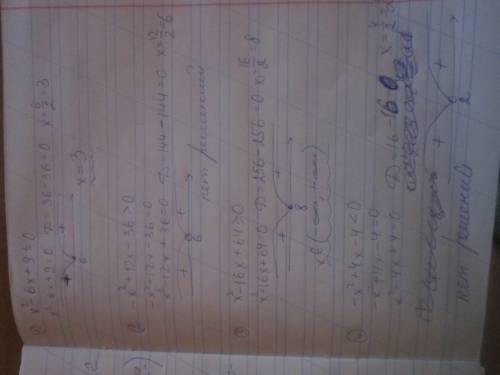 ① x²-6x+9≤0
x²-6x+9=0 D=36-36=0 x=6/2=3
+ +
x=3
② -x²+12x-36>0
-x²+12x-36=0
x²-12x+36=0 D=144-144=0 x=12/2=6
+ +
нет решений
③ x²-16x+64≥0
x²-16x+64=0 D=256-256=0 x=16/2=8
+ +
8
x∈(-∞;+∞)
④
-x²+4x-4=0
x²-4x+4=0 D=16-16=0
+ +
2
нет решений